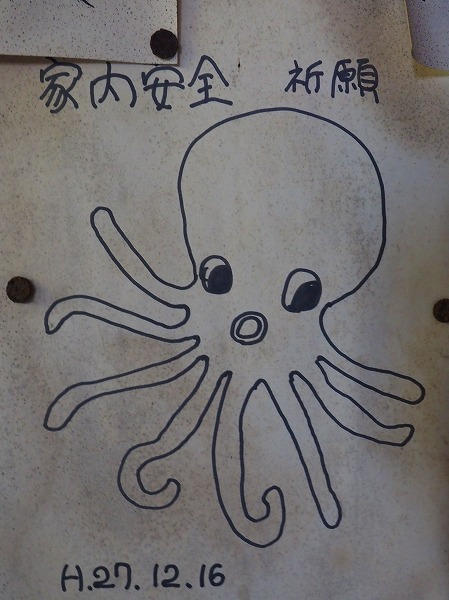 家内安全 祈願
H.27.12.16